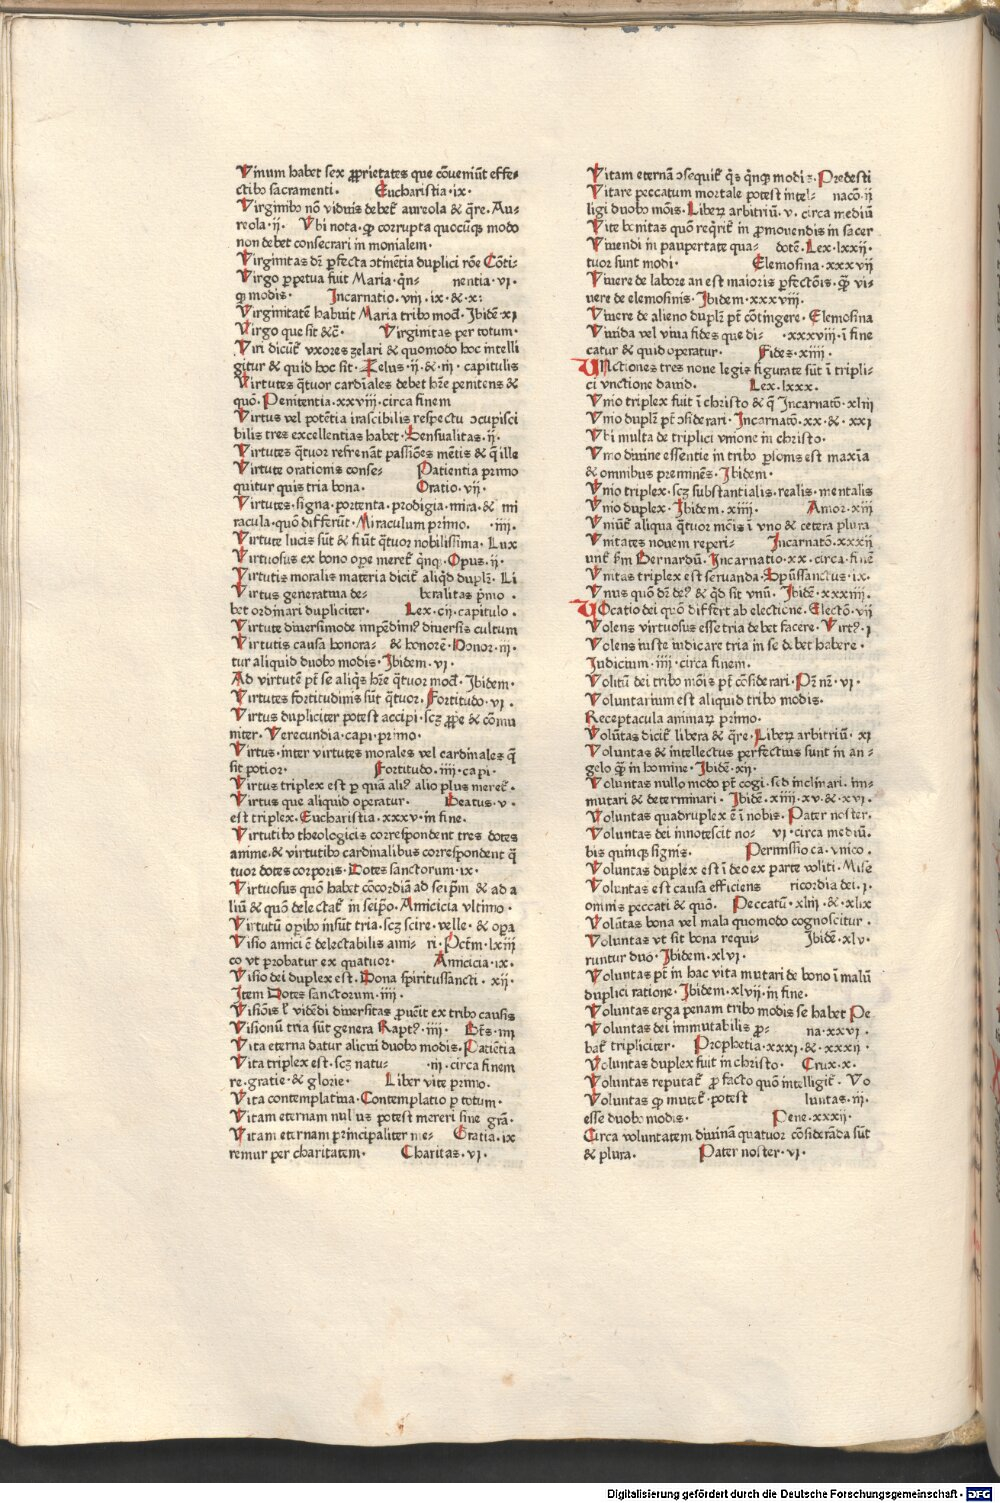 Vinum habet sex ꝓprietates que cōueniūt effe-
ctibꝰ sacramenti. Eucharistia .ix.
Virginibꝰ nō viduis debeť aureola & q̄re. Au-
reola .ij. Vbi nota. ꝙ corrupta quocūqꝫ modo
non debet consecrari in monialem.
Virginitas dꝫ perfecta ↄtinētia duplici rōe Cōti-
Virgo perpetua fuit Maria. q̄n- nentia .vi.
qꝫ modis. Incarnatio .vii. ix. & .x.
Virginitatē habuit Maria tribꝰ mod. Ibidē .xi
Virgo que sit &c̄. Virginitas per totum.
Viri dicūť vxores zelari & quomodo hoc intelli
gitur & quid hoc sit. Zelus .ij. & .iii. capitulis
Virtutes q̄tuor cardīales debet hr̄e penitens &
quō. Penitentia .xxviii. circa finem
Virtus vel potētia irascibilis respectu ↄcupisci
bilis tres excellentias habet. Sensualitas .ij.
Virtutes q̄tuor refrenāt passiōes mētis & q̄ ille
Virtute orationis conse- Patientia primo
quitur quis tria bona. Oratio .vij.
Virtutes. signa. portenta. prodigia. mira. & mi
racula. quō differūt. Miraculum primo. .iiii.
Virtute lucis sūt & fiūt q̄tuor nobilissima. Lux
Virtuosus ex bono oꝑe mereť q̄nqꝫ. Opus .ij.
Virtutis moralis materia diciť aliq̄d duplꝫ. Li
Virtus generatiua de- beralitas pͥmo.
bet ordinari dupliciter. Lex .cij. capitulo.
Virtute diuersimode impēdimꝰ diuersis cultum
Virtutis causa honora- & honorē. Honor .iii.
tur aliquid duobꝰ modis. Ibidem .vi.
Ad virtutē pt̄ se aliq̄s hr̄e q̄tuor mod. Ibidem.
Virtutes fortitudinis sūt q̄tuor. Fortitudo .vi.
Virtus dupliciter potest accipi. scꝫ ꝓpͥe & cōmu
niter. Verecundia. capi. primo.
Virtus. inter virtutes morales vel cardinales q̄
sit potior. Fortitudo .iiii. capi.
Virtus triplex est ꝑ quā aliꝰ alio plus mereť.
Virtus que aliquid operatur. Beatus .v.
est triplex. Eucharistia .xxxv. in fine.
Virtutibꝰ theologicis correspondent tres dotes
anime. & virtutibꝰ cardinalibus correspondent q̄
tuor dotes corporis. Dotes sanctorum .ix.
Virtuosus quō habet cōcordiā ad seipͥm & ad a
liū & quō delectať in seipͥo. Amicicia vltimo.
Virtutū oꝑibꝰ insūt tria. scꝫ scire. velle. & oꝑa
Visio amici ē delectabilis ami- ri. Pctm̄ .lxiii
co vt probatur ex quatuor. Amicicia .ix.
Visio dei duplex est. Dona spiritussancti .xij.
Item Dotes sanctorum .iiii.
Visiōis l' vidēdi diuersitas prouēit ex tribꝰ causis
Visionū tria sūt genera Raptꝰ .iiii. Bt̄s .iii
Vita eterna datur alicui duobꝰ modis. Patiētia
Vita triplex est. scꝫ natu- .iii. circa finem
re. gratie. & glorie. Liber vite primo.
Vita contemplatiua. Contemplatio ꝑ totum.
Vitam eternam nullus potest mereri sine grā.
Vitam eternam principaliter me- Gratia .ix
remur per charitatem. Charitas .vi.
Vitam eternā ↄsequiť q̄s q̄nqꝫ modis. Predesti
Vitare peccatum mortale potest intel- nacō .ij
ligi duobꝰ mōis. Liberꝫ arbitriū .v. circa mediū
Vite bonitas quō req̄riť in ꝓmouendis in sacer
Viuendi in paupertate qua- dotē. Lex .lxxij.
tuor sunt modi. Elemosina .xxxvij
Viuere de labore an est maioris perfectōis. q̄ vi-
uere de elemosinis. Ibidem .xxxviii.
Viuere de alieno duplꝫ pt̄ cōtingere. Elemosina
Viuida vel viua fides que di- .xxxviii. ī fine
catur & quid operatur. Fides .xiiii.
VNctiones tres noue legis figurate sūt ī tripli-
ci vnctione dauid. Lex .lxxx.
Vnio triplex fuit ī christo & q̄ Incarnatō .xliij
Vnio duplꝫ pt̄ ↄsiderari. Incarnatō .xx. & .xxi
Vbi multa de triplici vnione in christo.
Vnio diuine essentie in tribꝰ ꝑsonis est maxīa
& omnibus preminēs. Ibidem.
Vnio triplex. scꝫ substantialis. realis. mentalis
Vnio duplex. Ibidem .xiiii. Amor .xiii
Vniūť aliqua q̄tuor mōis ī vno & cetera plura
Vnitates nouem reperi- Incarnatō .xxxij
unť s̄m Bernardū. Incarnatio .xx. circa finē
Vnitas triplex est seruanda. Spūssanctus .ix.
Vnus quō dꝫ deꝰ & q̄d sit vnū. Ibidē .xxxiiii.
VOcatio dei quō differt ab electione. Electō .vij
Volens virtuosus esse tria debet facere. Virtꝰ .i
Volens iuste iudicare tria in se debet habere.
Iudicium .iiii. circa finem.
Volitū dei tribꝰ mōis pt̄ cōsiderari. Pr̄ nr̄ .vi.
Voluntarium est aliquid tribꝰ modis.
Receptacula animaꝝ primo.
Volūtas diciť libera & q̄re. Liberꝫ arbitriū .xi
Voluntas & intellectus perfectius sunt in an-
gelo q̄ in homine. Ibidē .xij.
Voluntas nullo modo pt̄ cogi. sed inclinari. im-
mutari & determinari. Ibidē .xiiii. xv. & .xvi.
Voluntas quadruplex ē ī nobis. Pater noster.
Voluntas dei innotescit no- vi. circa mediū.
bis quinqꝫ signis. Permissio ca. vnico.
Voluntas duplex est ī deo ex parte voliti. Mise
Voluntas est causa efficiens ricordia dei .i.
omnis peccati & quō. Peccatū .xliii. & .xlix
Volūtas bona vel mala quomodo cognoscitur.
Voluntas vt sit bona requi- Ibidē .xlv.
runtur duo. Ibidem .xlvi.
Voluntas pt̄ in hac vita mutari de bono ī malū
duplici ratione. Ibidem .xlvii. in fine.
Voluntas erga penam tribꝰ modis se habet Pe
Voluntas dei immutabilis pro- na .xxvi.
bať tripliciter. Prophetia .xxxi. & .xxxij.
Voluntas duplex fuit in christo. Crux .x.
Voluntas reputať ꝓ facto quō intelligiť. Vo
Voluntas ꝙ muteť. potest luntas .iii.
esse duobꝰ modis. Pene .xxxij.
Circa voluntatem diuinā quatuor cōsiderāda sūt
& plura. Pater noster .vi.
Digitalisierung gefördert durch die Deutsche Forschungsgemeinschaft - DFG